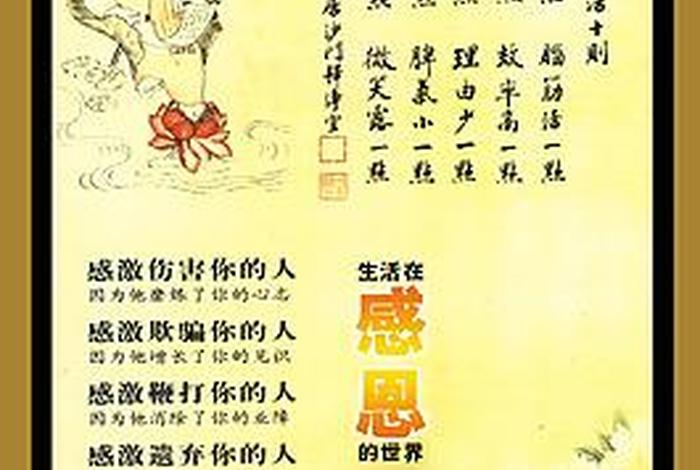 活十則
點 腦筋活一點
點 效率高一點
點 理由少一點
點 脾氣小一點
點 微笑露一點
沙門釋淨空
感激伤害你的人
因为他磨炼了你的心志
感激欺骗你的人
因为他增长了你的见识
感激鞭打你的人
因为他消除了你的业障
感激遺弃你的人
生活在
感
恩
的世界